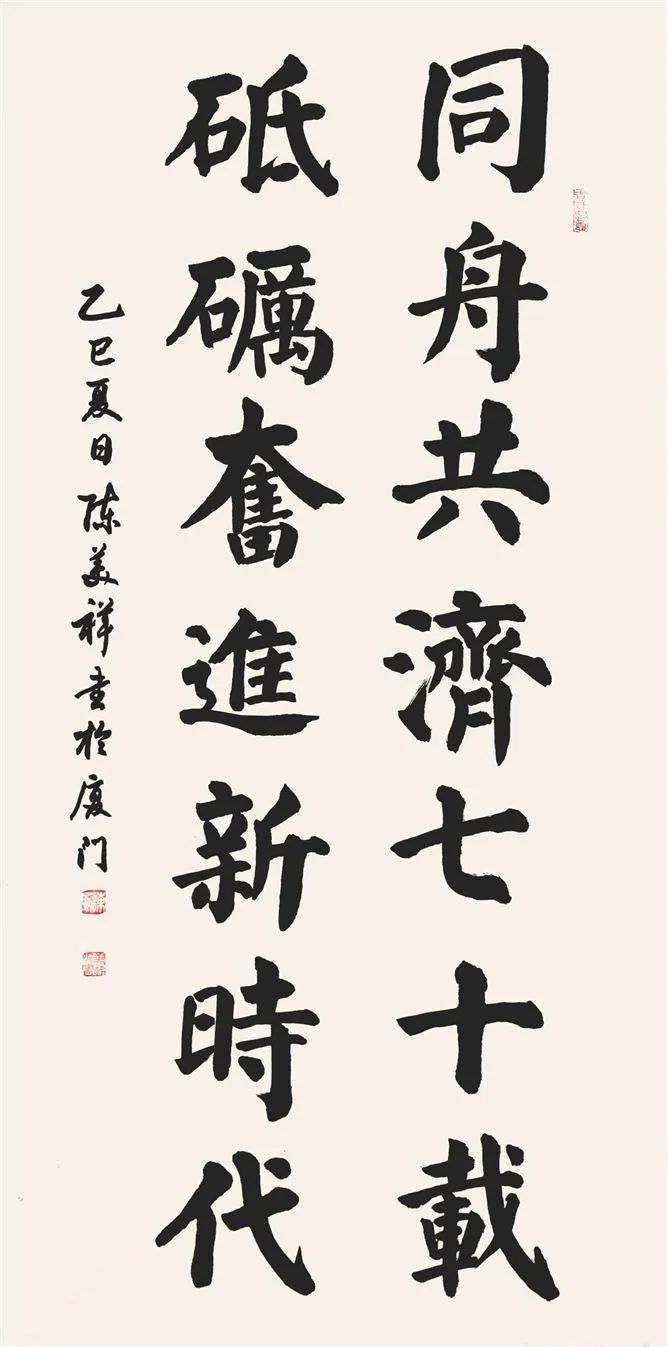 同舟共濟七十載
砥礪奮進新時代
乙巳夏日陈美祥书於厦门